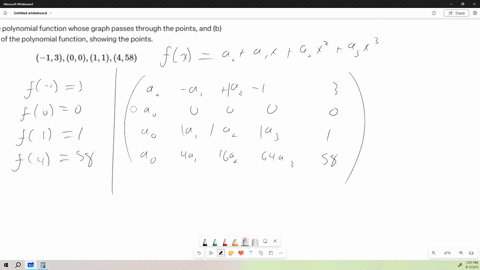 Microsoft Whiteboard
Untitled whiteboard
Share
polynomial function whose graph passes through the points, and (b)
of the polynomial function, showing the points.
(-1,3), (0,0), (1,1), (4,58)
f(x) = a₀ + a₁x + a₂x² + a₃x³
f(-1) = 3
f(0) = 0
f(1) = 1
f(4) = 58
a₀ -a₁ +1a₂ -1 3
a₀ 0 0 0 0
a₀ 1a₁ 1a₂ 1a₃ 1
a₀ 4a₁ 16a₂ 64a₃ 58